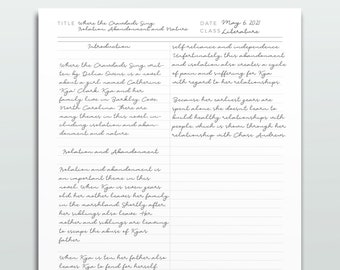 TITLE Where the Crawdads Sing DATE May 6, 2021
Isolation Abandonment and Nature CLASS Literature
Introduction
Where the Crawdads Sing writ-
ten by Delia Owens is a novel
about a girl named Catherine
Kya Clark. Kya and her
family live in Barkley Cove
North Carolina. There are
many themes in this novel in-
cluding isolation and aban-
donment and nature.
Isolation and Abandonment
Isolation and abandonment is
an important theme in this
novel. When Kya is seven years
old her mother leaves her family
in the marshland. Shortly after
her siblings also leave. Her
mother and siblings are leaving
to escape the abuse of Kyas
father.
When Kya is ten her father also
leaves Kya to fend for herself.
self reliance and independence.
Unfortunately this abandonment
and isolation also creates a cycle
of pain and suffering for Kya
with regard to her relationships.
Because her earliest years are
spent alone she doesnt learn to
build healthy relationships with
people which is shown through her
relationship with Chase Andrews.